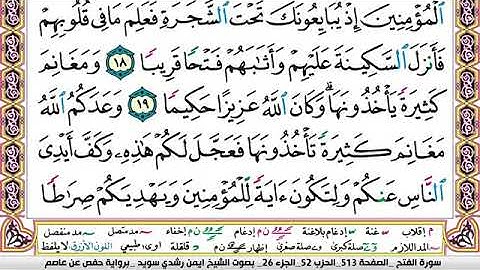 ٱلۡمُؤۡمِنِينَ إِذۡ يُبَايِعُونَكَ تَحۡتَ ٱلشَّجَرَةِ فَعَلِمَ مَا فِي قُلُوبِهِمۡ
فَأَنزَلَ ٱلسَّكِينَةَ عَلَيۡهِمۡ وَأَثَٰبَهُمۡ فَتۡحٗا قَرِيبٗا ١٨ وَمَغَانِمَ
كَثِيرَةٗ يَأۡخُذُونَهَاۗ وَكَانَ ٱللَّهُ عَزِيزًا حَكِيمٗا ١٩ وَعَدَكُمُ ٱللَّهُ
مَغَانِمَ كَثِيرَةٗ تَأۡخُذُونَهَا فَعَجَّلَ لَكُمۡ هَٰذِهِۦ وَكَفَّ أَيۡدِيَ
ٱلنَّاسِ عَنكُمۡ وَلِتَكُونَ ءَايَةٗ لِّلۡمُؤۡمِنِينَ وَيَهۡدِيَكُمۡ صِرَٰطٗا
م إقلاب غنة إدغام بلاغنة ن م إدغام ن م إخفاء مد متصل مد منفصل
المد اللازم صلة كبرى صلة صغرى إظهار ن م قلقلة أوى: طبيعي اللون الأزرق لا يلفظ
سورة الفتح _ الصفحة 513_ الحزب 52_ الجزء 26_ بصوت الشيخ ايمن رشدي سويد _برواية حفص عن عاصم